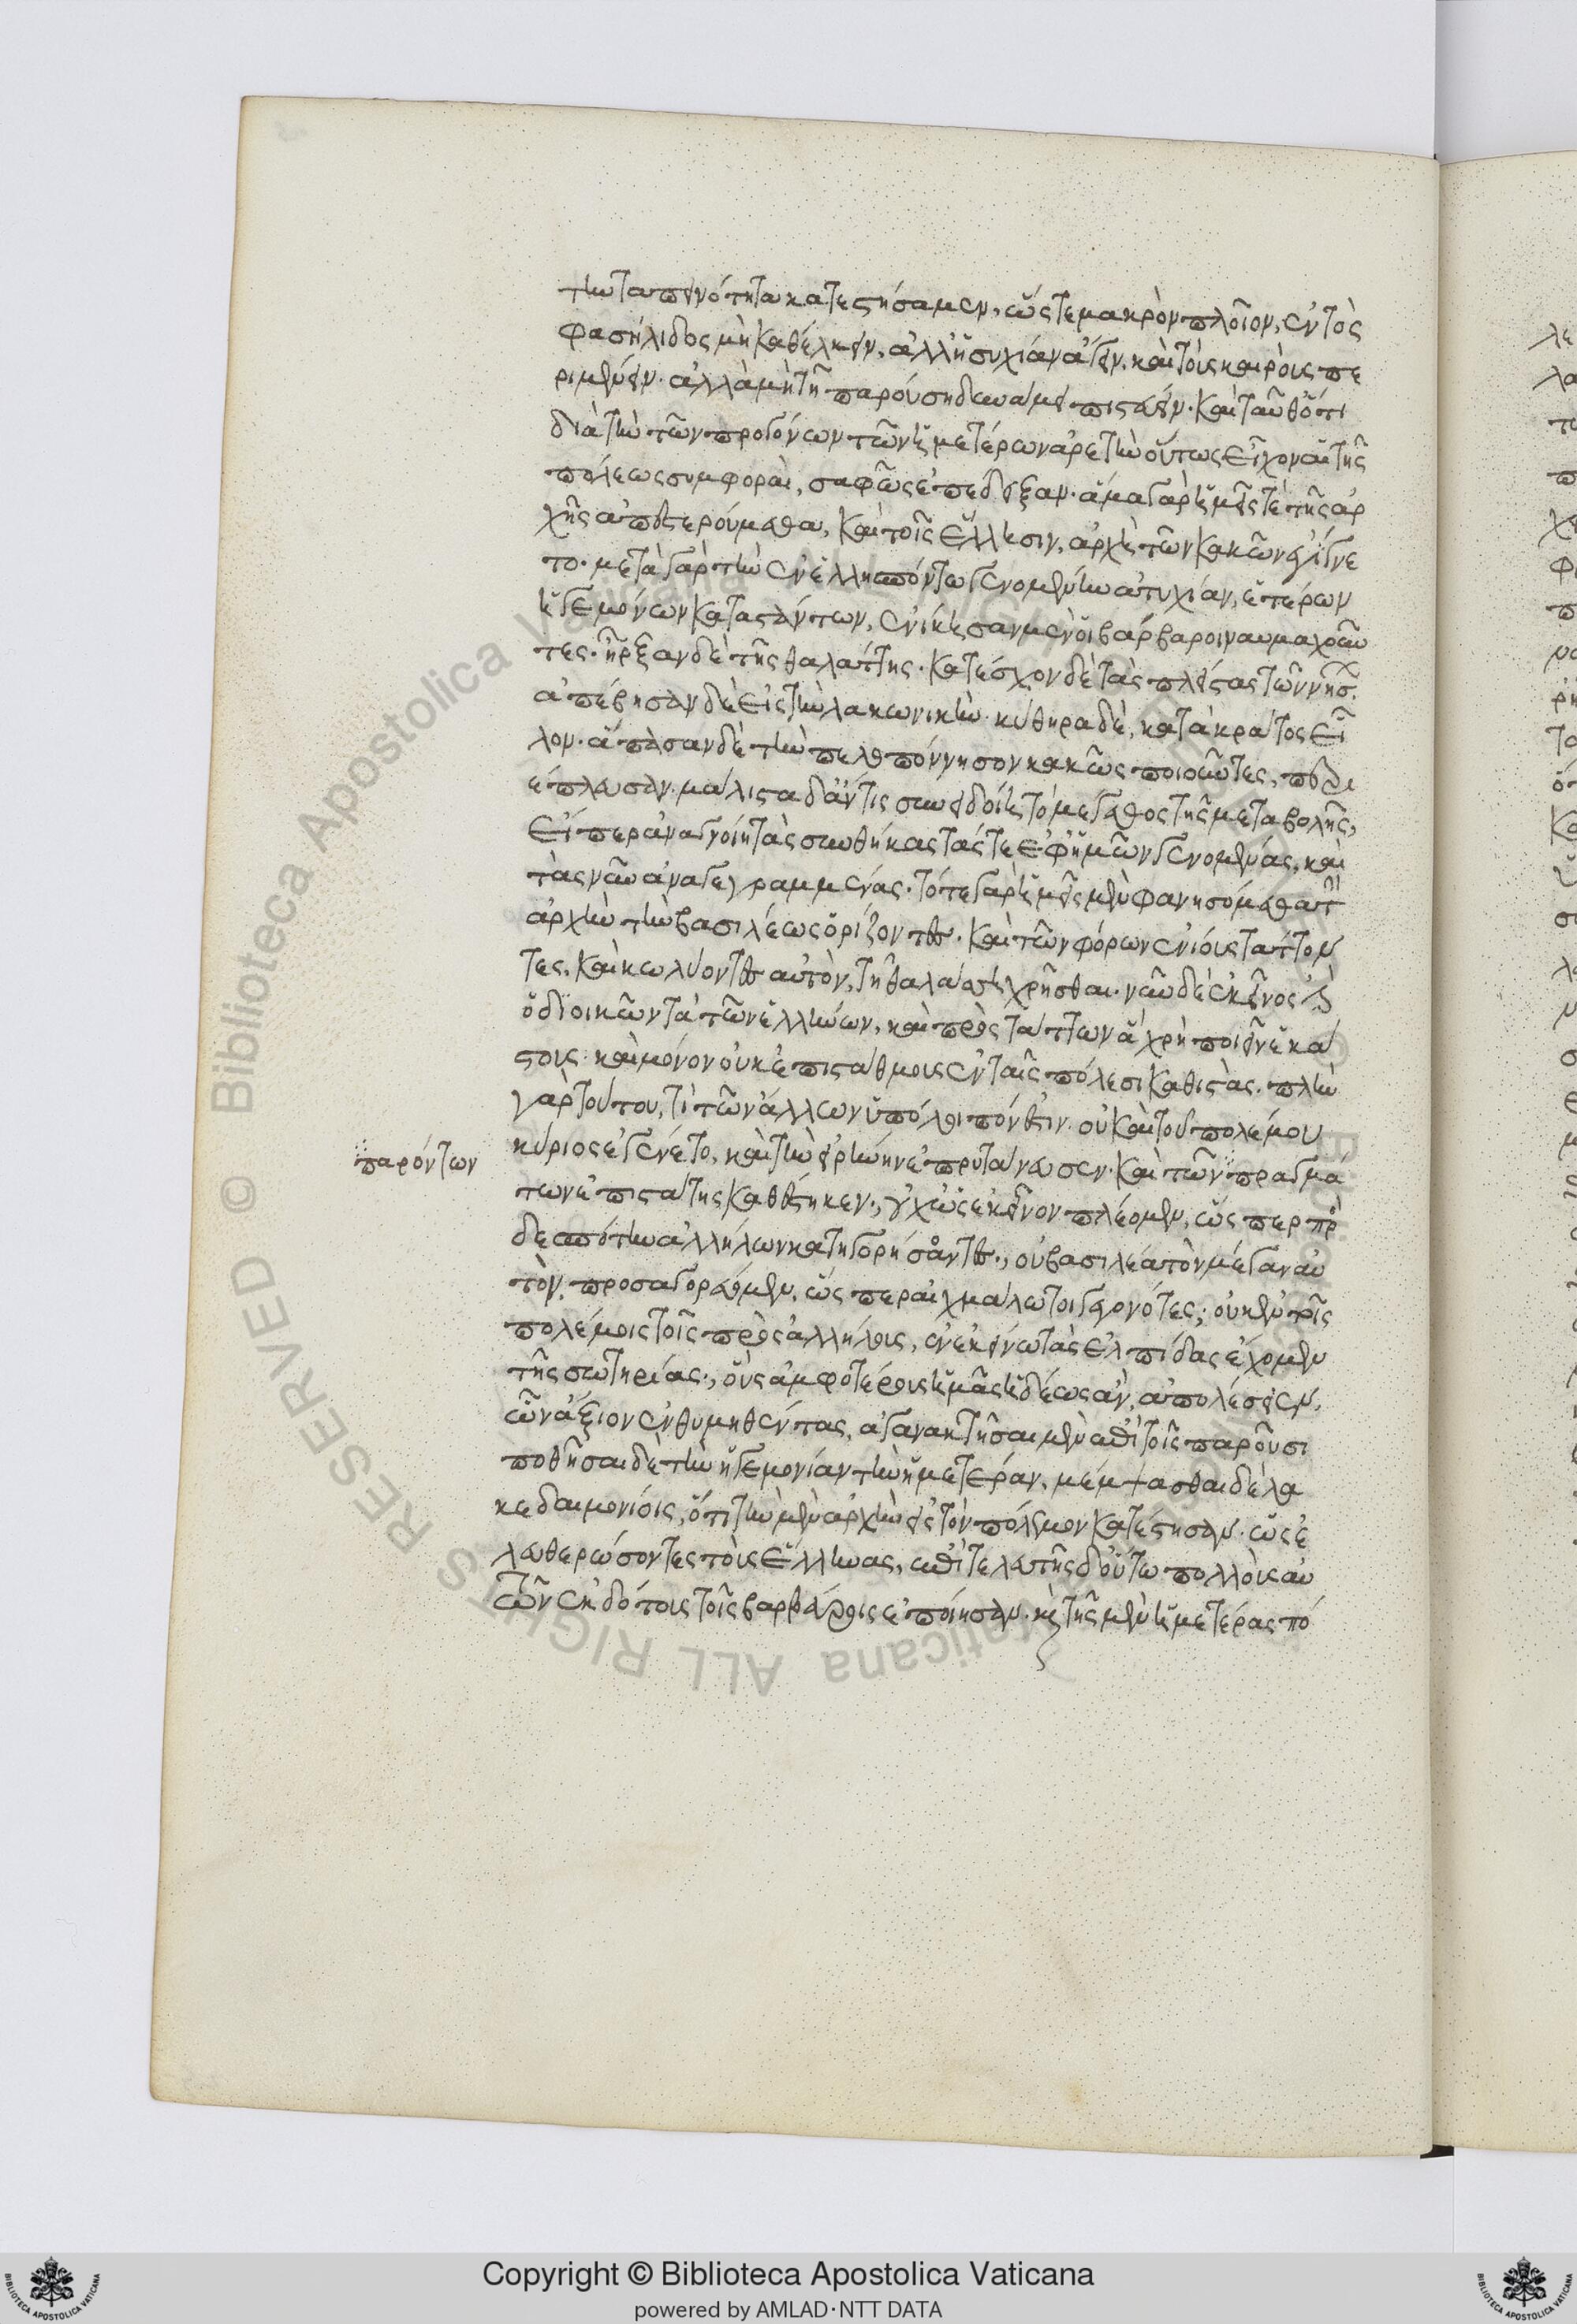 την ταπεινότητα κατεστήσαμεν, ὥστε μακρὸν πλοῖον, ἐντὸς
φασήλιδος μὴ καθέλκειν, ἀλλ' ἡσυχίαν ἄγειν. καὶ τοὺς καιροὺς πε
ριμένειν. ἀλλὰ μὴ τῇ παρούσῃ δυνάμει πιστεύειν. καὶ ταῦθ' ὅτι
διὰ τὴν τῶν προγόνων τῶν ἡμετέρων ἀρετὴν οὕτως εἶχον αἱ τῆς
πόλεως συμφοραὶ, σαφῶς ἐπέδειξαν. ἅμα γὰρ ἡμεῖς τὲ τῆς ἀρ
χῆς ἀπεστερούμεθα, καὶ τοῖς ἕλλησιν, ἀρχὴ τῶν κακῶν ἐγίγνε
το. μετὰ γὰρ τὴν ἐν ἑλλησπόντω γενομένην ἀτυχίαν, ἑτέρων
ἡγεμόνων καταστάντων, ἐνίκησαν μὲν οἱ βάρβαροι ναυμαχοῦν
τες. ἦρξαν δὲ τῆς θαλάττης. κατέσχον δὲ τὰς πλείστας τῶν νήσ.
ἀπέβησαν δὲ εἰς τὴν λακωνικὴν. κύθηρα δὲ, κατὰ κράτος εἷ
λον. ἅπασαν δὲ τὴν πελοπόννησον κακῶς ποιοῦντες, περι
έπλευσαν. μάλιστα δ' ἄν τις συνείδοι τὸ μέγεθος τῆς μεταβολῆς,
εἴπερ ἀναγνοίη τὰς συνθήκας τάς τε ἐφ' ἡμῶν γενομένας, καὶ
τὰς νῦν ἀναγεγραμμένας. τότε γὰρ ἡμεῖς μὲν φανησόμεθα τ
ἀρχὴν τὴν βασιλέως ὁρίζοντες. καὶ τῶν φόρων ἐνίους τάττον
τες. καὶ κωλύοντες αὐτὸν, τῇ θαλάττῃ χρῆσθαι. νῦν δὲ ἐκεῖνός ἐστιν
ὁ διοικῶν τὰ τῶν ἑλλήνων, καὶ προστάττων ἃ χρὴ ποιεῖν ἑκά
στους. καὶ μόνον οὐκ ἐπιστάθμους ἐν ταῖς πόλεσι καθιστάς. πλὴν
γὰρ τούτου, τί τῶν ἄλλων ὑπόλοιπόν ἐστιν. οὐ καὶ τοῦ πολέμου
κύριος ἐγένετο, καὶ τὴν εἰρήνην ἐπρυτάνευσεν. καὶ τῶν πραγμά
παρόντων
των ἐπιστάτης καθέστηκεν; οὐχ ὡς ἐκεῖνον πλέομεν, ὥσπερ πρὸ
δεσπότην ἀλλήλων κατηγορήσοντες; οὐ βασιλέα τὸν μέγαν αὐ
τὸν. προσαγορεύομεν, ὥσπερ αἰχμάλωτοι γεγονότες; οὐκ ἐν τοῖς
πολέμοις τοῖς πρὸς ἀλλήλους, ἐν ἐκείνω τὰς ἐλπίδας ἔχομεν
τῆς σωτηρίας; ὃς ἀμφοτέρους ἡμᾶς ἡδέως ἂν, ἀπολέσειεν,
ὧν ἄξιον ἐνθυμηθέντας, ἀγανακτῆσαι μὲν ἐπὶ τοῖς παροῦσι
ποθῆσαι δὲ τὴν ἡγεμονίαν τὴν ἡμετέραν. μέμψασθαι δὲ λα
κεδαιμονίοις, ὅτι τὴν μὲν ἀρχὴν εἰς τὸν πόλεμον κατέστησαν. ὡς ἐ
λευθερώσοντες τοὺς ἕλληνας, ἐπὶ τελευτῆς δ' οὕτω πολλοὺς αὐ
τῶν ἐκδότους τοῖς βαρβάροις ἐποίησαν. καὶ τῆς μὲν ἡμετέρας πό
Copyright © Biblioteca Apostolica Vaticana
powered by AMLAD·NTT DATA